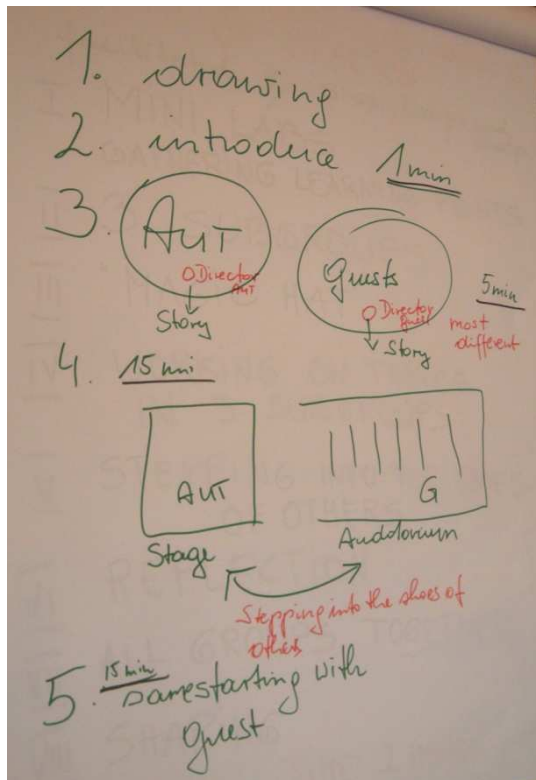 1. drawing
2 introduce 1 min
3. AUT
O Director
AUT
Story
guests
O Director
guest
Story
5 min
most
different
4. 15 min
AUT
Stage
G
Auditorium
Stepping into the shoes of
others
5. 15 min
same starting with
guest